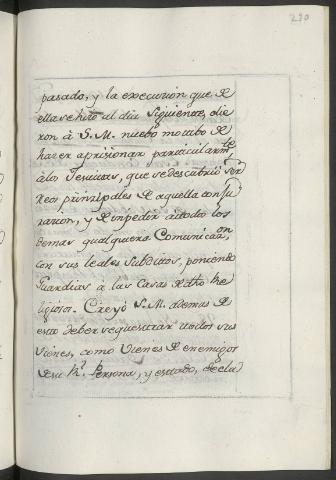 290
pasado, y la execucion que de
ella se hizo al dia siguiente, die
ron à S. M. nuebo motibo de
hazer aprisionar particularm.te
à los Jesuitas, que se descubrió ser
Reos prinzipales de aquella conju
razion, y de impedir a todos los
demas qualquiera Comunicaz.on
con sus leales subditos, poniendo
Guardias à las Casas de dho Re
ligiosos. Creyó S. M. ademas de
esto deber sequestrar todos sus
vienes, como vienes de enemigos
de su R.l Persona, y estado, decla